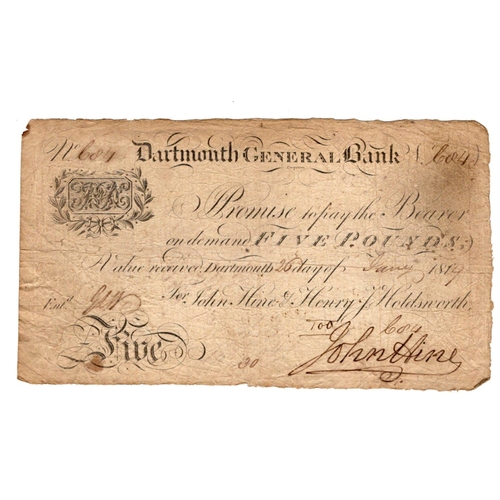 No. 684 Dartmouth GENERAL Bank No. 684
I Promise to pay the Bearer
on demand FIVE POUNDS
Value received Dartmouth 26 day of Jany 1814
Entd. For John Hine & Henry J. Holdsworth
100 684
Five 30 John Hine